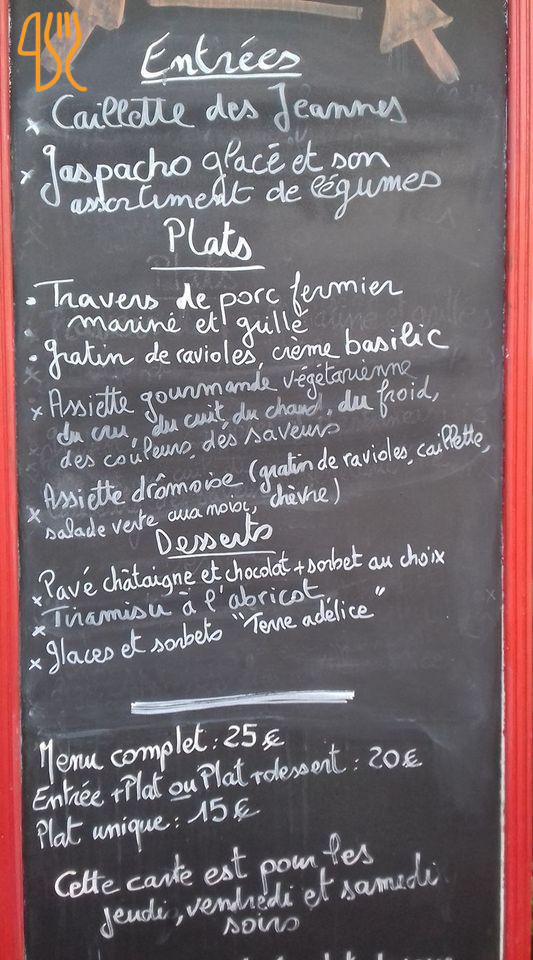 Entrées
x Caillette des Jeannes
x Gaspacho glacé et son
assortiment de légumes
Plats
• Travers de porc fermier
mariné et grillé
• Gratin de ravioles, crème basilic
x Assiette gourmande végétarienne
du cru, du cuit, du chaud, du froid,
des couleurs, des saveurs
x Assiette drômoise (gratin de ravioles, caillette,
salade verte aux noix, chèvre)
Desserts
x Pavé châtaigne et chocolat + sorbet au choix
x Tiramisu à l'abricot
x Glaces et sorbets "Terre adélice"
Menu complet : 25 €
Entrée + Plat ou Plat + dessert : 20 €
Plat unique : 15 €
Cette carte est pour les
jeudi, vendredi et samedi
soirs